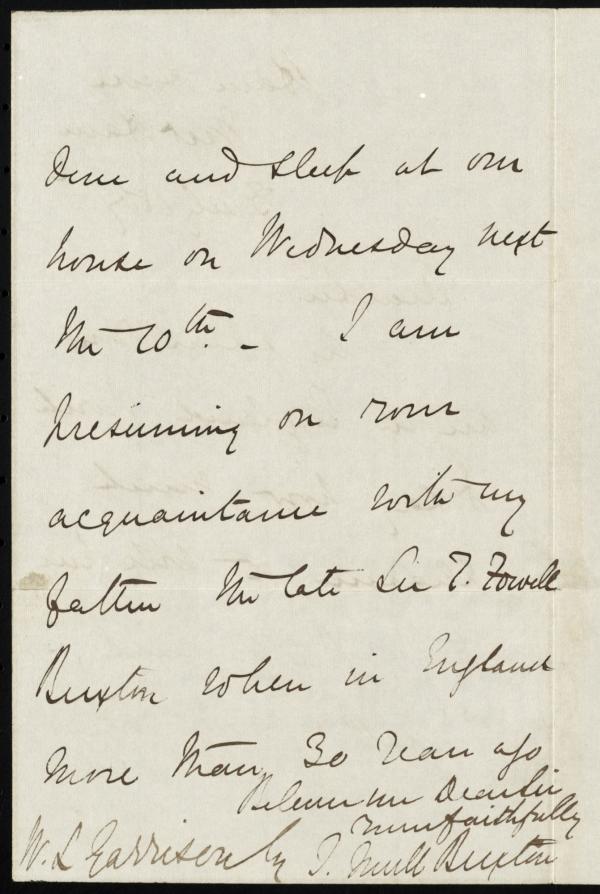 dine and sleep at our
house on Wednesday next
the 10th. – I am
presuming on your
acquaintance with my
father the late Sir T. Fowell
Buxton when in England
more than 30 years ago
Believe me Dear Sir
yours faithfully
W. L Garrison Esq T. Buxton